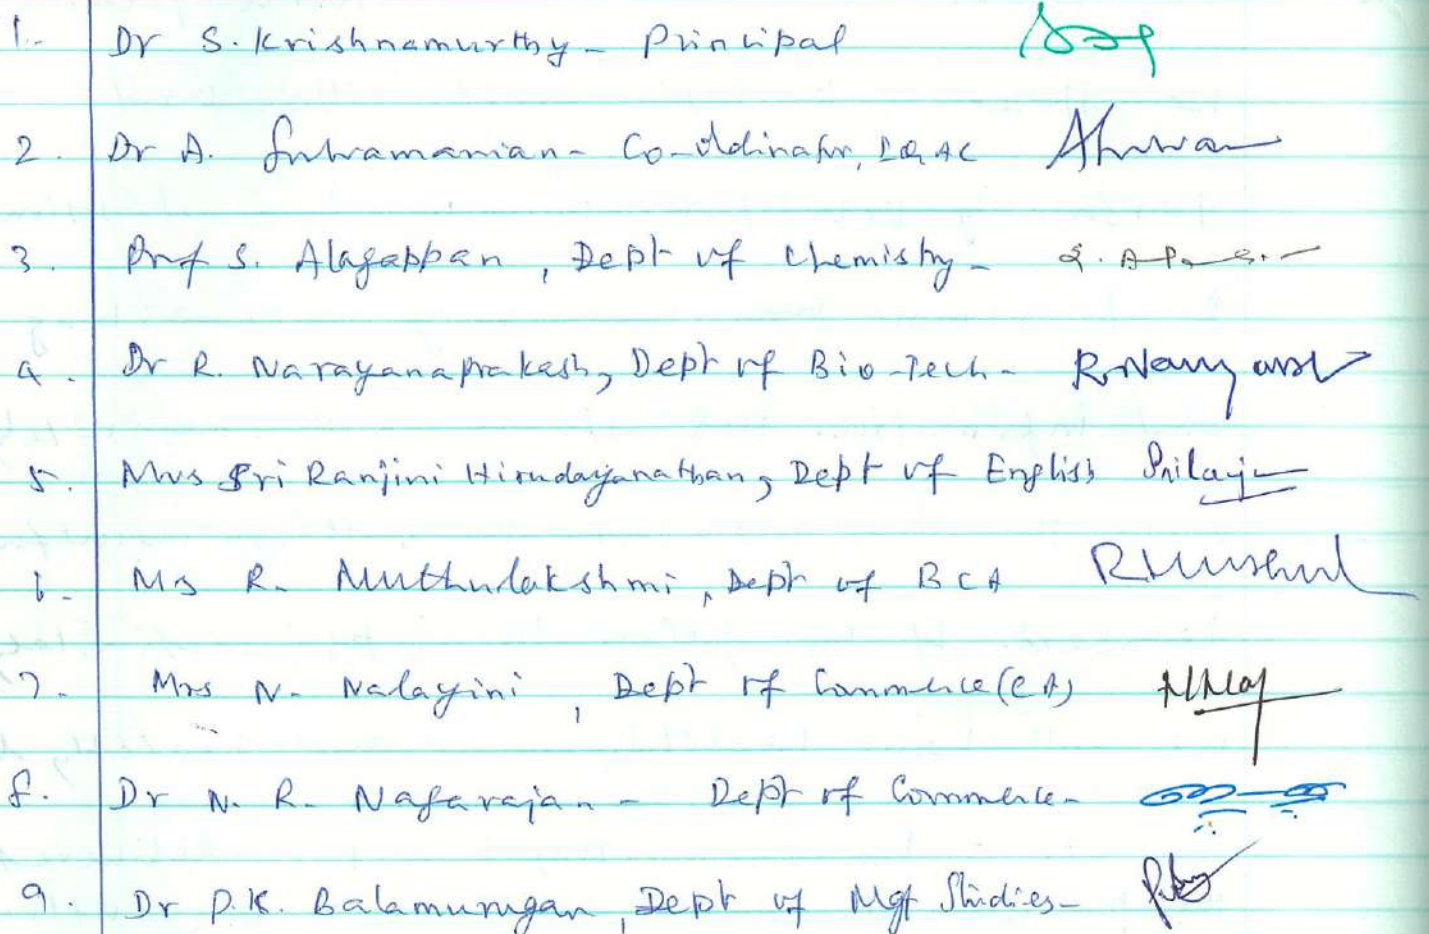 1. Dr S. Krishnamurthy - Principal
2. Dr A. Subramanian - Co-ordinator, IQAC
3. Prof S. Alagappan, Dept of Chemistry -
4. Dr R. Narayanaprakash, Dept of Bio-Tech -
5. Mrs Sri Ranjini Hirudayanathan, Dept of English
6. Ms R. Muthulakshmi, Dept of BCA
7. Mrs N. Nalayini, Dept of Commerce (CA)
8. Dr N. R. Nagarajan - Dept of Commerce -
9. Dr P.K. Balamurugan, Dept of Mgt Studies -